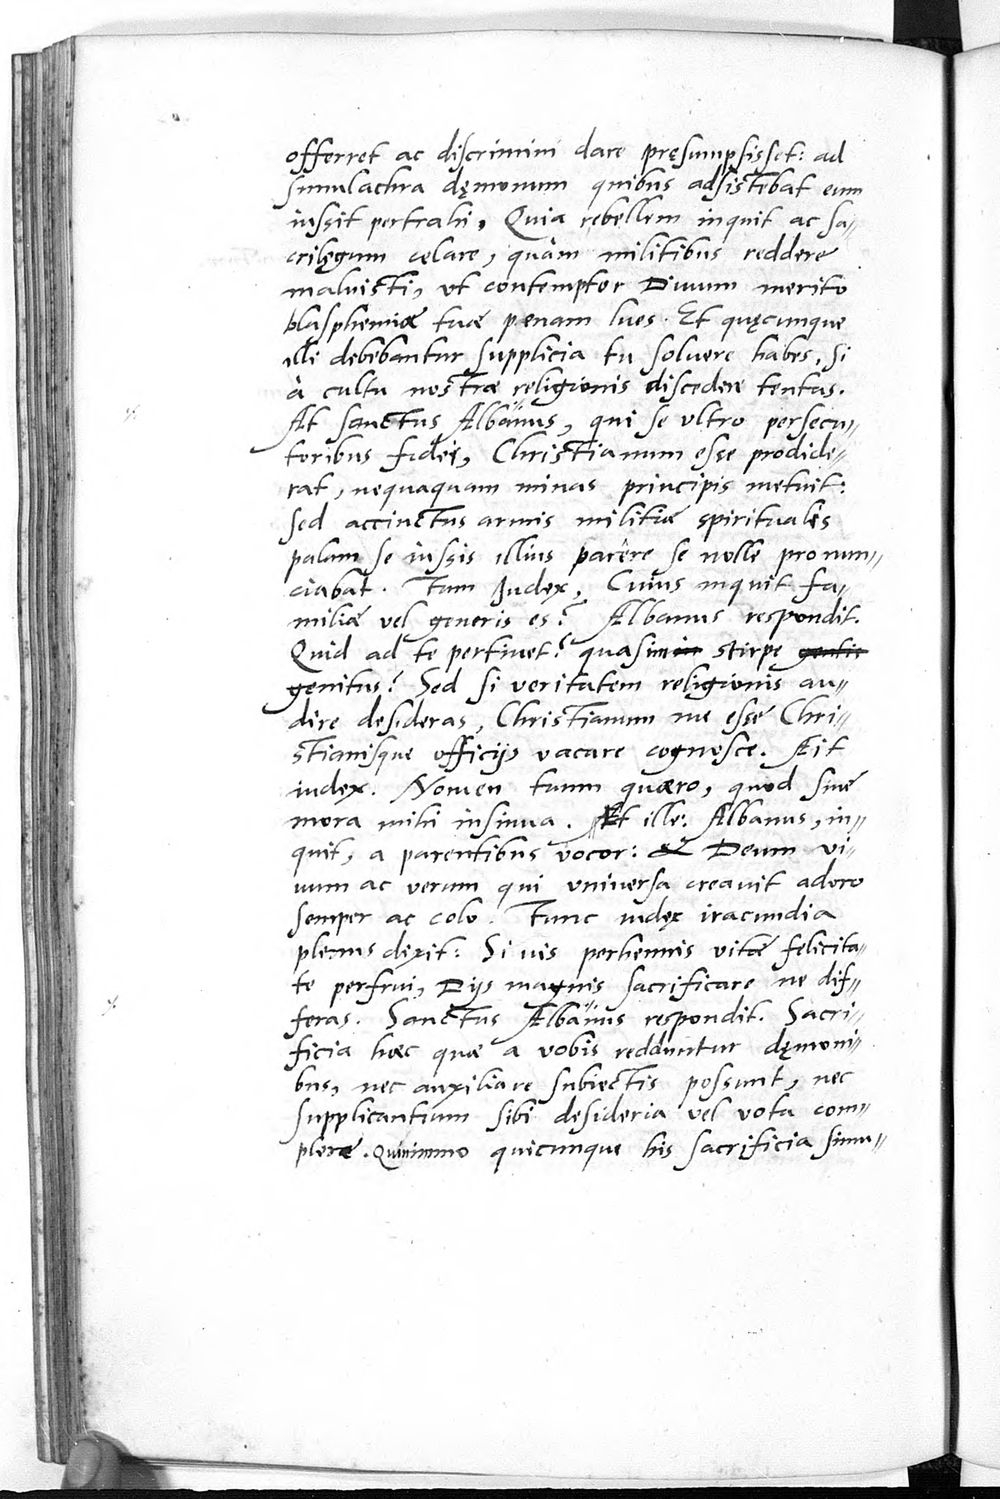 offerret ac discrimini dare pręsumpsisset: ad
simulachra dęmonum quibus adsistebat eum
iussit pertrahi, Quia rebellem inquit ac sa-
crilęgum celare, quàm militibus reddere
maluisti, vt contemptor Diuum merito
blasphemiæ tuæ pœnam lues. Et quęcunque
illi debebantur supplicia tu soluere habes, si
à cultu nostræ religionis discedere tentas.
At sanctus Albanus, qui se vltro persecu-
toribus fidei, Christianum esse prodide-
rat, nequaquam minas principis metuit:
sed accinctus armis militiæ spiritualis
palam se iussis illius parêre se nolle pronun-
ciabat. Tum Judex, Cuius inquit fa-
miliæ vel generis es? Albanus respondit.
Quid ad te pertinet? qua sim in stirpe gentis
genitus? Sed si veritatem religionis au-
dire desideras, Christianum me esse Chri-
stianisque officijs vacare cognosce. Ait
iudex. Nomen tuum quæro, quod sine
mora mihi insinua. Et ille: Albanus, in-
quit, a parentibus vocor: & Deum vi-
uum ac verum qui vniuersa creauit adoro
semper ac colo. Tunc iudex iracundia
plenus dixit: Si uis perhennis vitæ felicita-
te perfrui, Dijs magnis sacrificare ne dif-
feras. Sanctus Albanus respondit. Sacri-
ficia hæc quæ a vobis redduntur dęmoni-
bus, nec auxiliare subiectis possunt, nec
supplicantium sibi desideria vel vota com-
plere. Quinimmo quicunque his sacrificia simu-